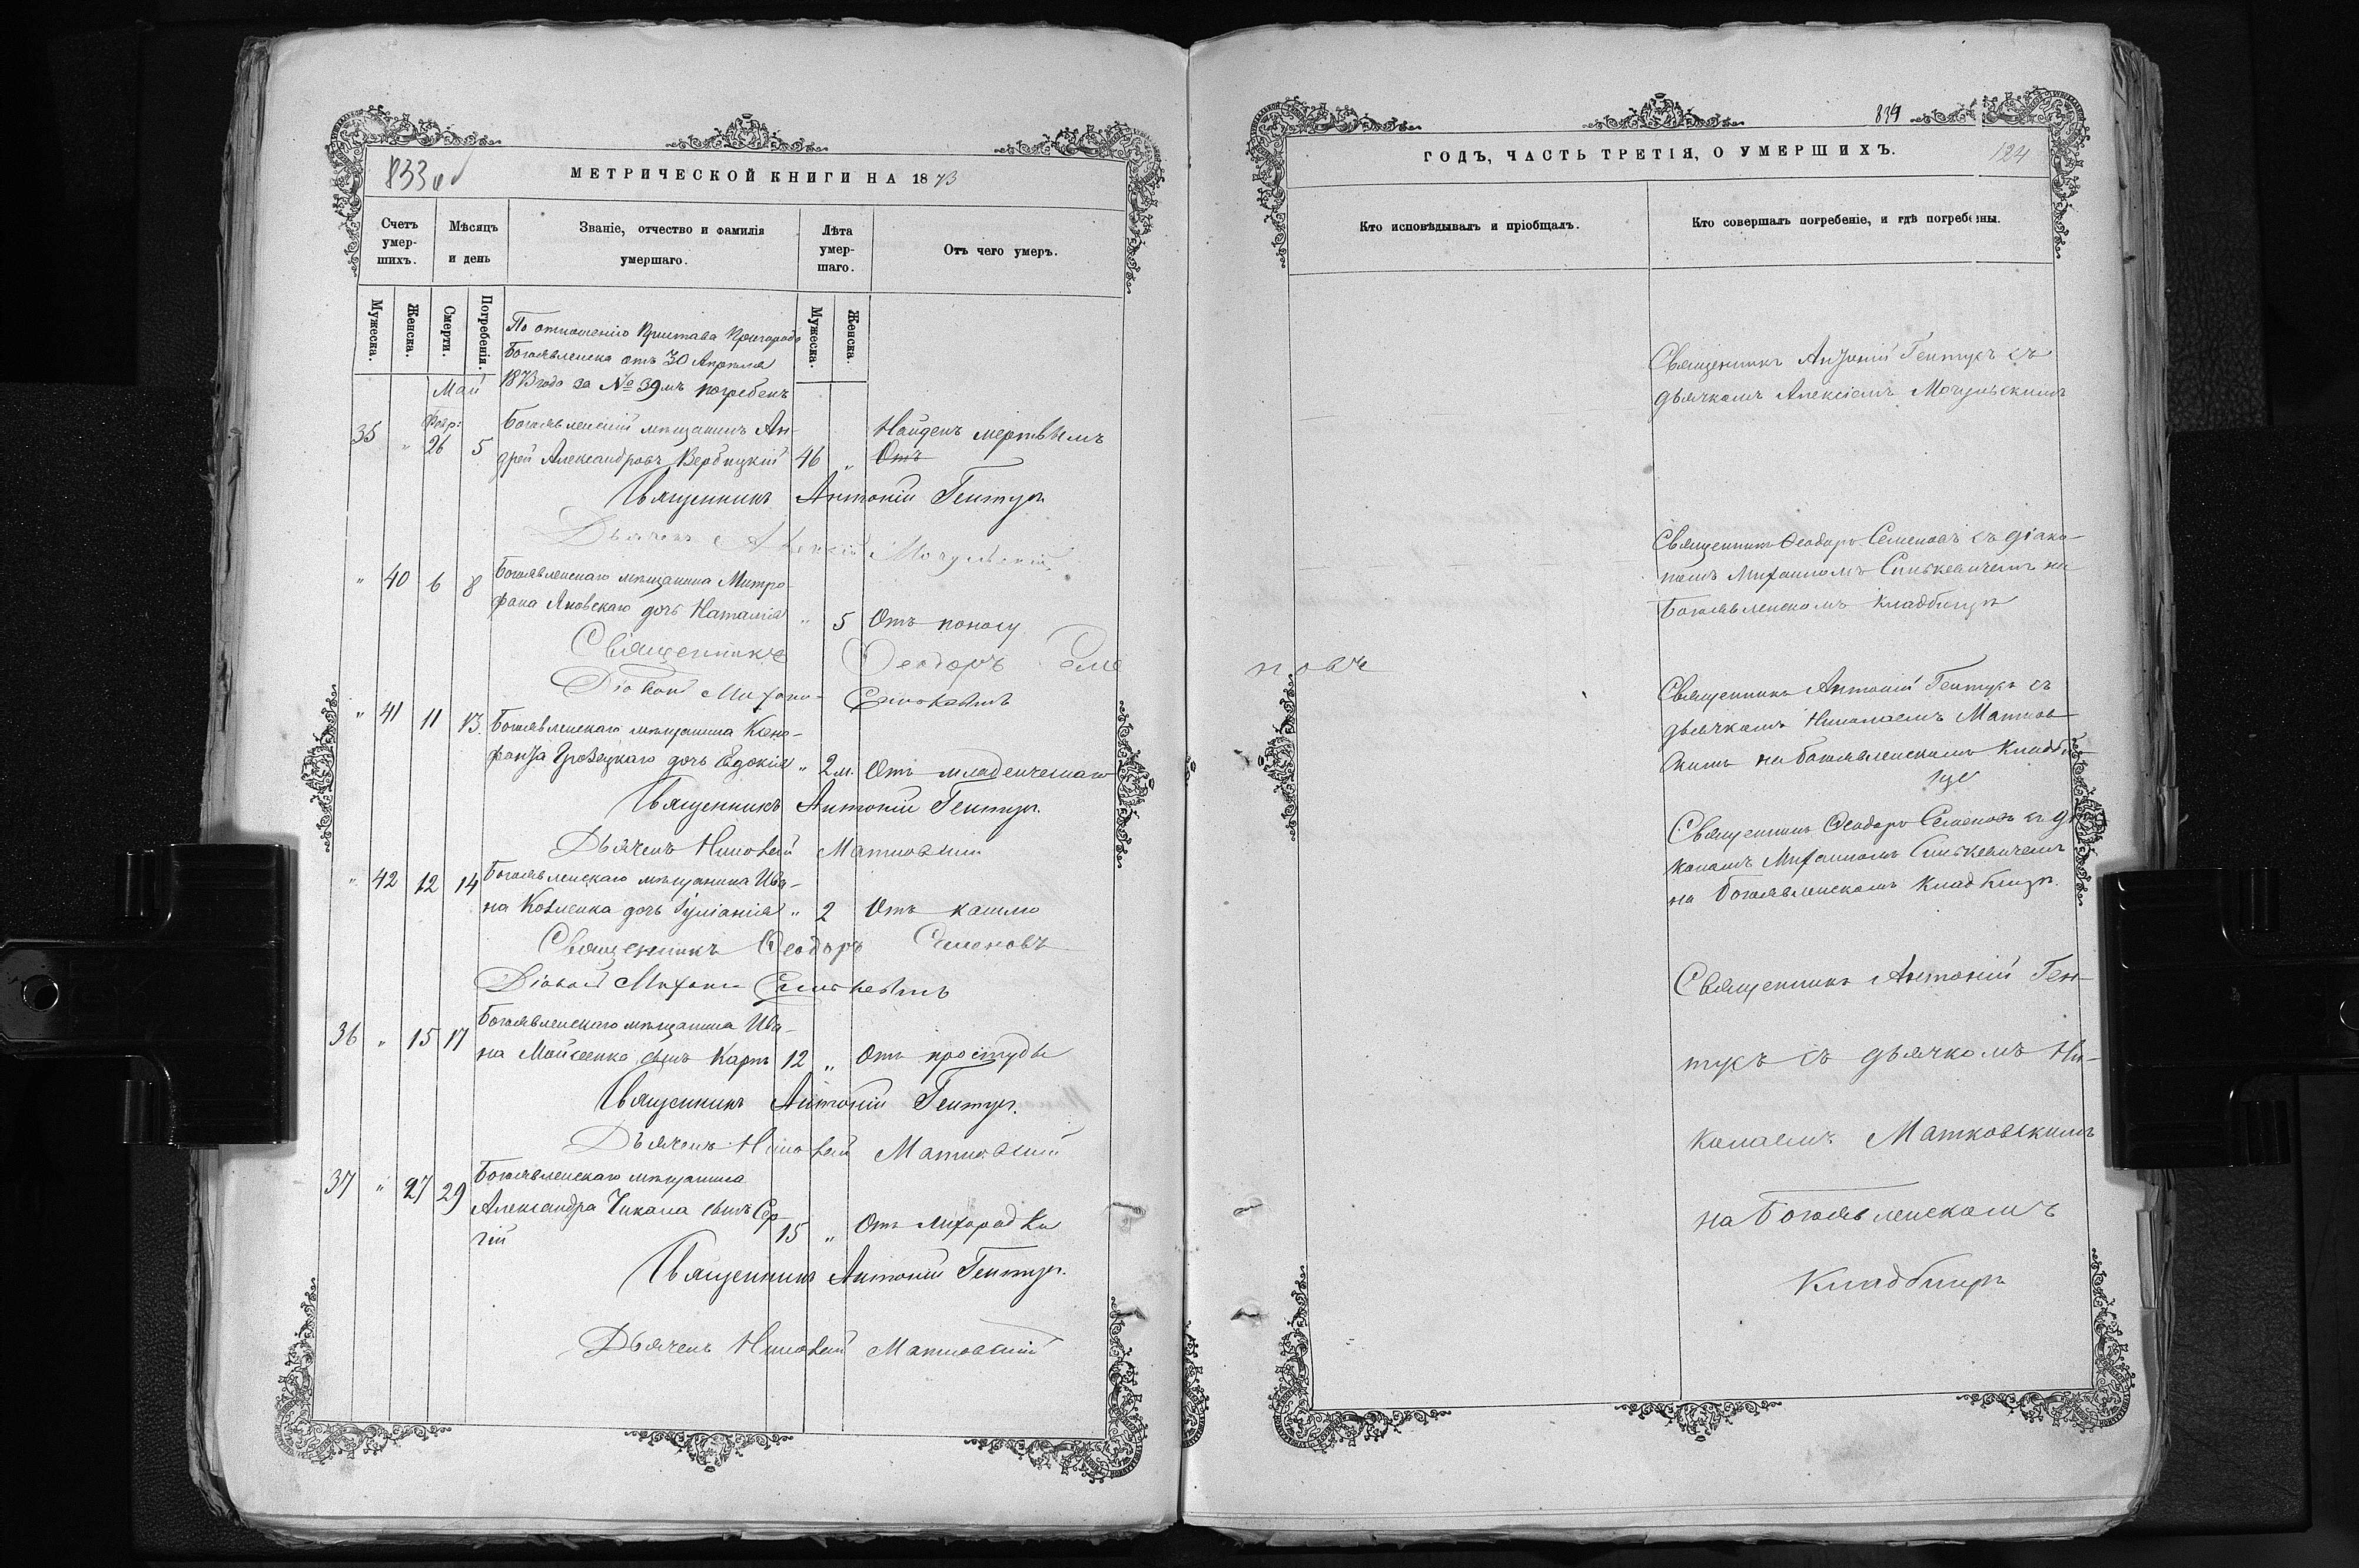 833
МЕТРИЧЕСКОЙ КНИГИ НА 1873
Счетъ умер-шихъ.
Мѣсяцъ и день
Званіе, отчество и фамилія умершаго.
Лѣта умер-шаго.
Отъ чего умеръ.
Мужеска.
Женска.
Смерти.
Погребенія.
Мужеска.
Женска.
По отношенію Пристава Пригорода
Богоявленска отъ 30 Апрѣля
1873 года за № 39мъ погребенъ
Май
Февр:
35 " 26 5 Богоявленскій мѣщанинъ Ан-
дрей Александровъ Вербицкій 46 " Найденъ мертвымъ
Отъ
Священникъ Антоній Гентуръ
Дьячекъ Алексій Мочульскій
" 40 6 8 Богоявленскаго мѣщанина Митро-
фана Яновскаго дочь Наталія " 5 Отъ поносу
Священникъ Ѳеодоръ Семе
новъ
Діаконъ Михаилъ Синькевичъ
" 41 11 13 Богоявленскаго мѣщанина Ксено-
фонта дочь Евдокія " 2 м. Отъ младенческаго
Священникъ Антоній Гентуръ.
Дьячекъ Николай Матковскій
" 42 12 14 Богоявленскаго мѣщанина Ива-
на Козленка дочь Іуліанія " 2 Отъ кашлю
Священникъ Ѳеодоръ Семеновъ
Діаконъ Михаилъ Синькевичъ
36 " 15 17 Богоявленскаго мѣщанина Ива-
на Мойсеенко сынъ Карпъ 12 " Отъ простуды
Священникъ Антоній Гентуръ.
Дьячекъ Николай Матковскій
37 " 27 29 Богоявленскаго мѣщанина
Александра Чикала сынъ Сер-
гій 15 " Отъ лихорадки
Священникъ Антоній Гентуръ.
Дьячекъ Николай Матковскій
834
124
ГОДЪ, ЧАСТЬ ТРЕТІЯ, О УМЕРШИХЪ.
Кто исповѣдывалъ и пріобщалъ.
Кто совершалъ погребеніе, и гдѣ погребены.
Священникъ Антоній Гентуръ съ
дьячкомъ Алексіемъ Мочульскимъ
Священникъ Ѳеодоръ Семеновъ съ діако-
номъ Михаиломъ Синькевичемъ на
Богоявленскомъ кладбищѣ
Священникъ Антоній Гентуръ съ
дьячкомъ Николаемъ Матков-
скимъ на Богоявленскомъ Кладби-
щѣ
Священникъ Ѳеодоръ Семеновъ съ діа-
кономъ Михаиломъ Синькевичемъ
на Богоявленскомъ Кладбищѣ.
Священникъ Антоній Ген-
туръ съ дьячкомъ Ни-
колаемъ Матковскимъ
на Богоявленскомъ
Кладбищѣ